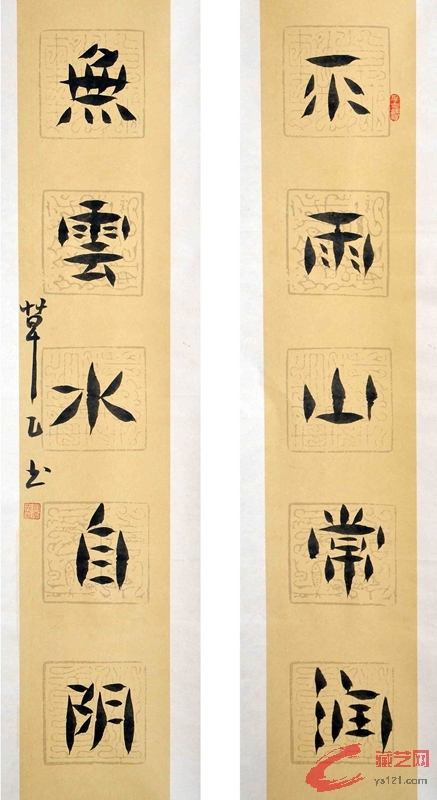 不雨山常润
無雲水自阴
草书
藏艺网
ys121.com